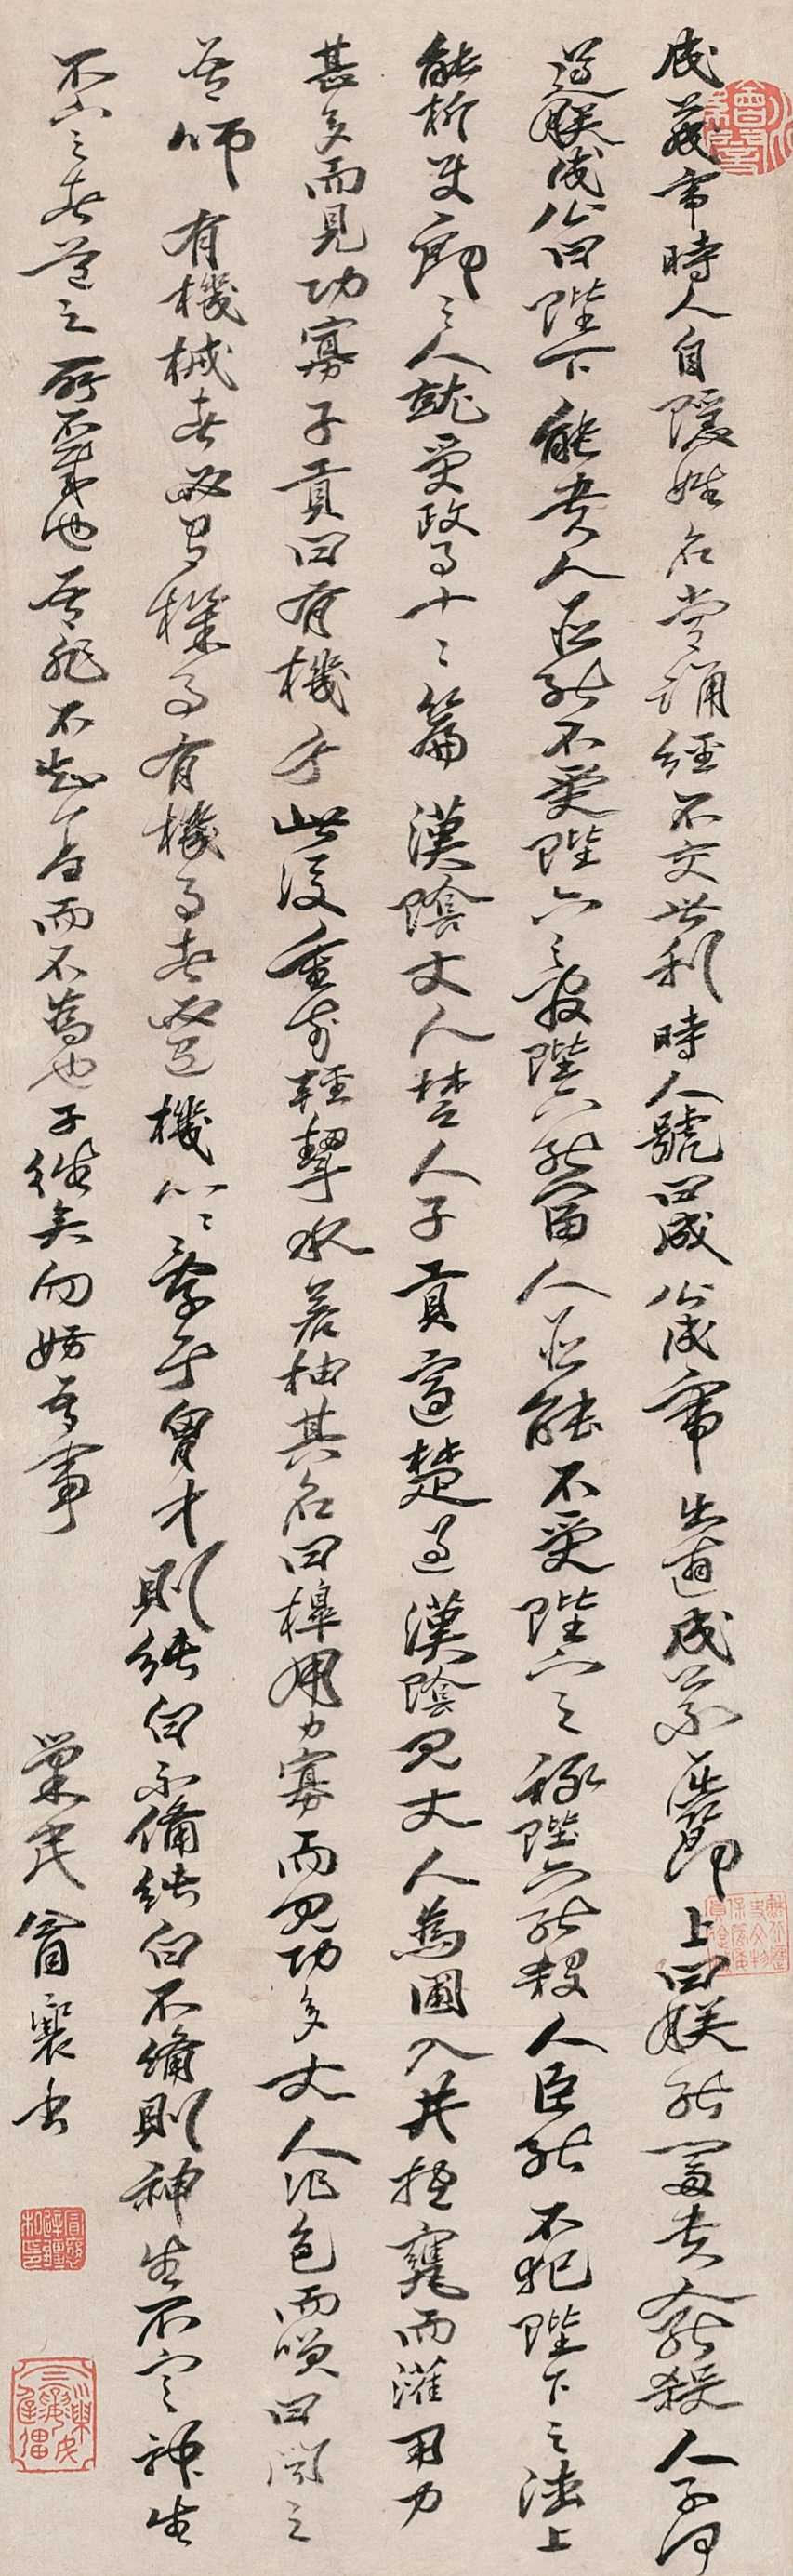 成公成帝時人自隱姓名常誦經不交世利時人號曰成公成帝出遊成公不屈節上曰朕能富貴人能殺人子何
逆朕成公曰陛下能貴人臣能不受陛下之官陛下能富人臣能不受陛下之祿陛下能殺人臣能不犯陛下之法上
不能折使郎二人就受政事十二篇漢陰丈人楚人子貢適楚過漢陰見丈人為圃入井抱甕而灌用力
甚多而見功寡子貢曰有機于此後重前輕挈水若抽其名曰槔用力寡而見功多丈人作色而笑曰聞之
吾師有機械者必有機事有機事者必有機心機心存于胸中則純白不備純白不備則神生不定神生
不定者道之所不載也吾非不知羞而不為也子往矣勿妨吾事
巢民冒襄書